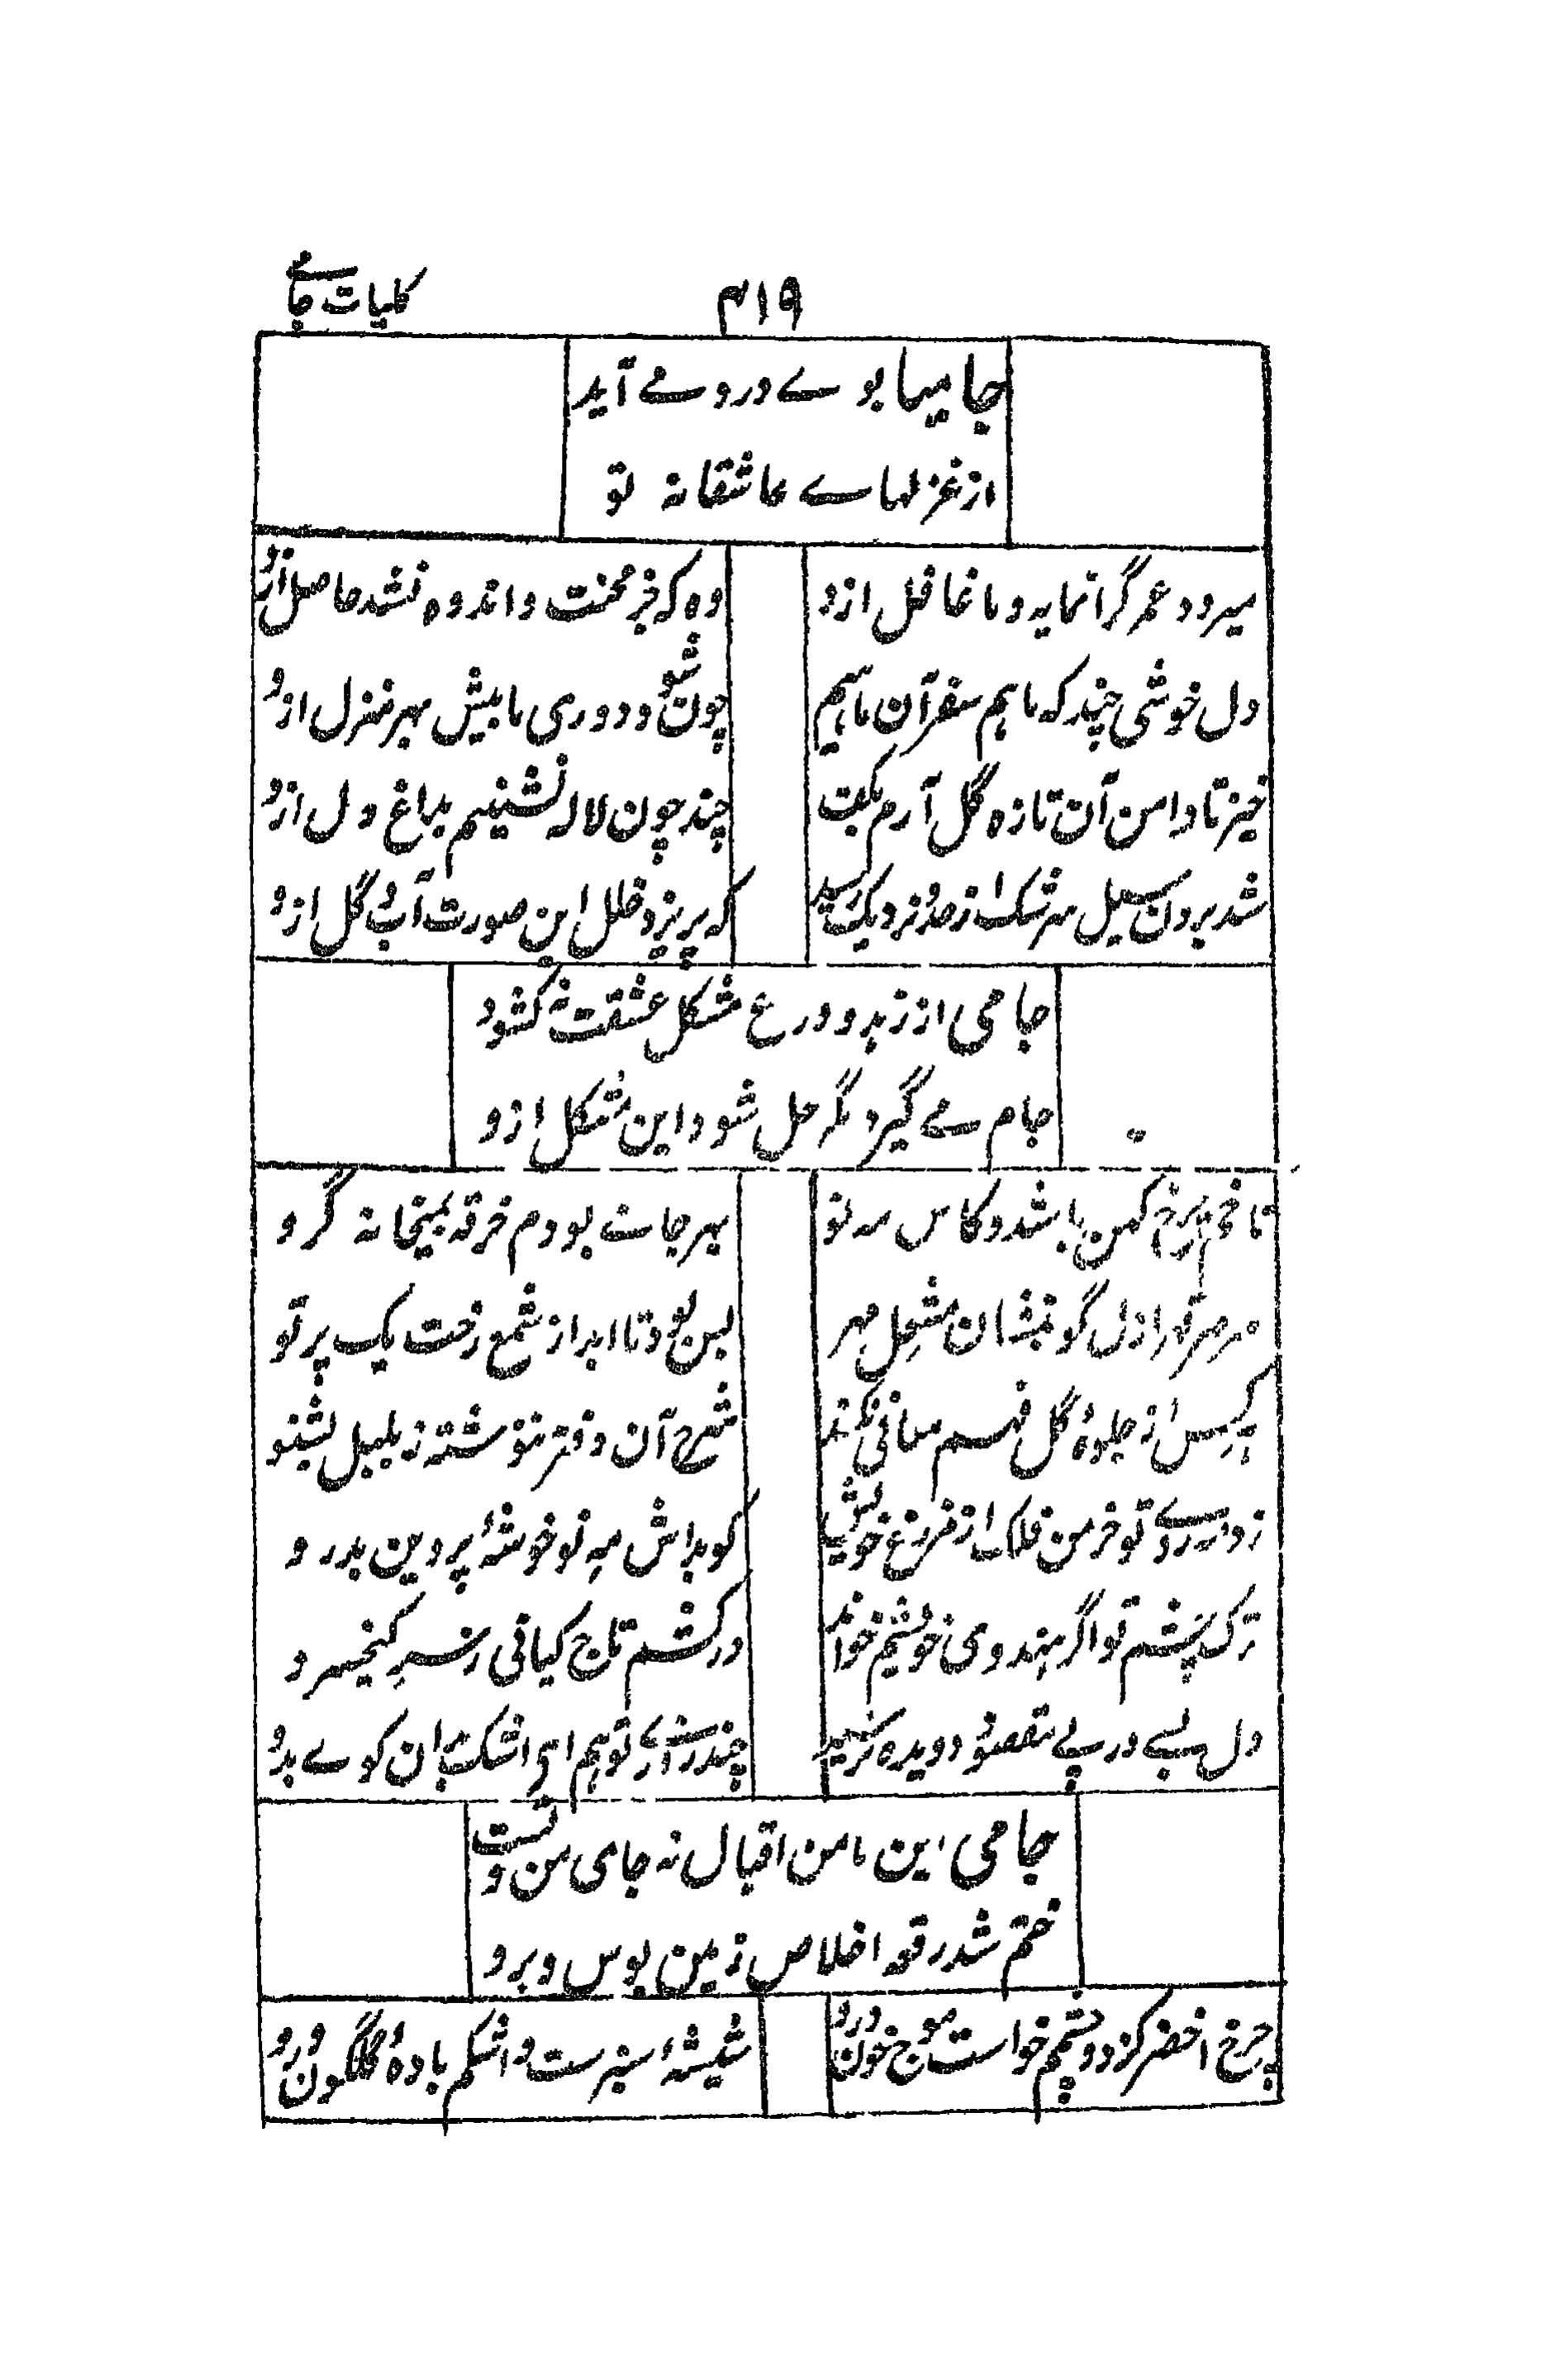 کلیات جامے
۴۱۹
جامیا بوے درد مے آید
از غزلہاے عاشقانہ تو
میرود عمر گرانمایہ و ما غافل ازو
وہ کہ جز محنت و اندوہ نشد حاصل ازو
دل خوشی چند کہ ما ہم سفر آن ماہیم
چون شو دوری ما بیش بہر منزل ازو
خیز تا دامن آن تازہ گل آرم بکف
چند چون لالہ نشینیم بداغ دل ازو
شد برون سیل سرشک از حد و نزدیک رسید
کہ پریزد خلل این صورت آب و گل ازو
جامی از زہد و ورع مشکل عشقت نہ کشود
جام مے گیر مگر حل شود این مشکل ازو
تا خم چرخ کہن باشد و کاس مہ نو
بہر جامت بودم خرقہ بمیخانہ گرو
صرصر قہر ازل گو بنشان مشعل مہر
بس بود تا ابد از شمع رخت یک پرتو
ہر کس از جلوۂ گل فہم معانی نکند
شرح آن دفتر ننوشتہ ز بلبل بشنو
زد روے تو خرمن فلک از مزرع خویش
گو بداش مہ نو خوشۂ پروین بدرو
ترک چشم تو اگر ہندوی خویشم خواند
درکشم تاج کیانی ز سر کیخسرو
دل بسے در پے مقصود دوید و نرسید
چند روزے تو ہم اے اشک بران کوے بدو
جامی این مامن اقبال نہ جای من و تست
ختم شد رقعہ اخلاص زمین بوس و برو
چرخ اخضر کز دو چشمم خواست موج خون درو
شیشۂ سبزست و اشکم بادۂ گلگون درو